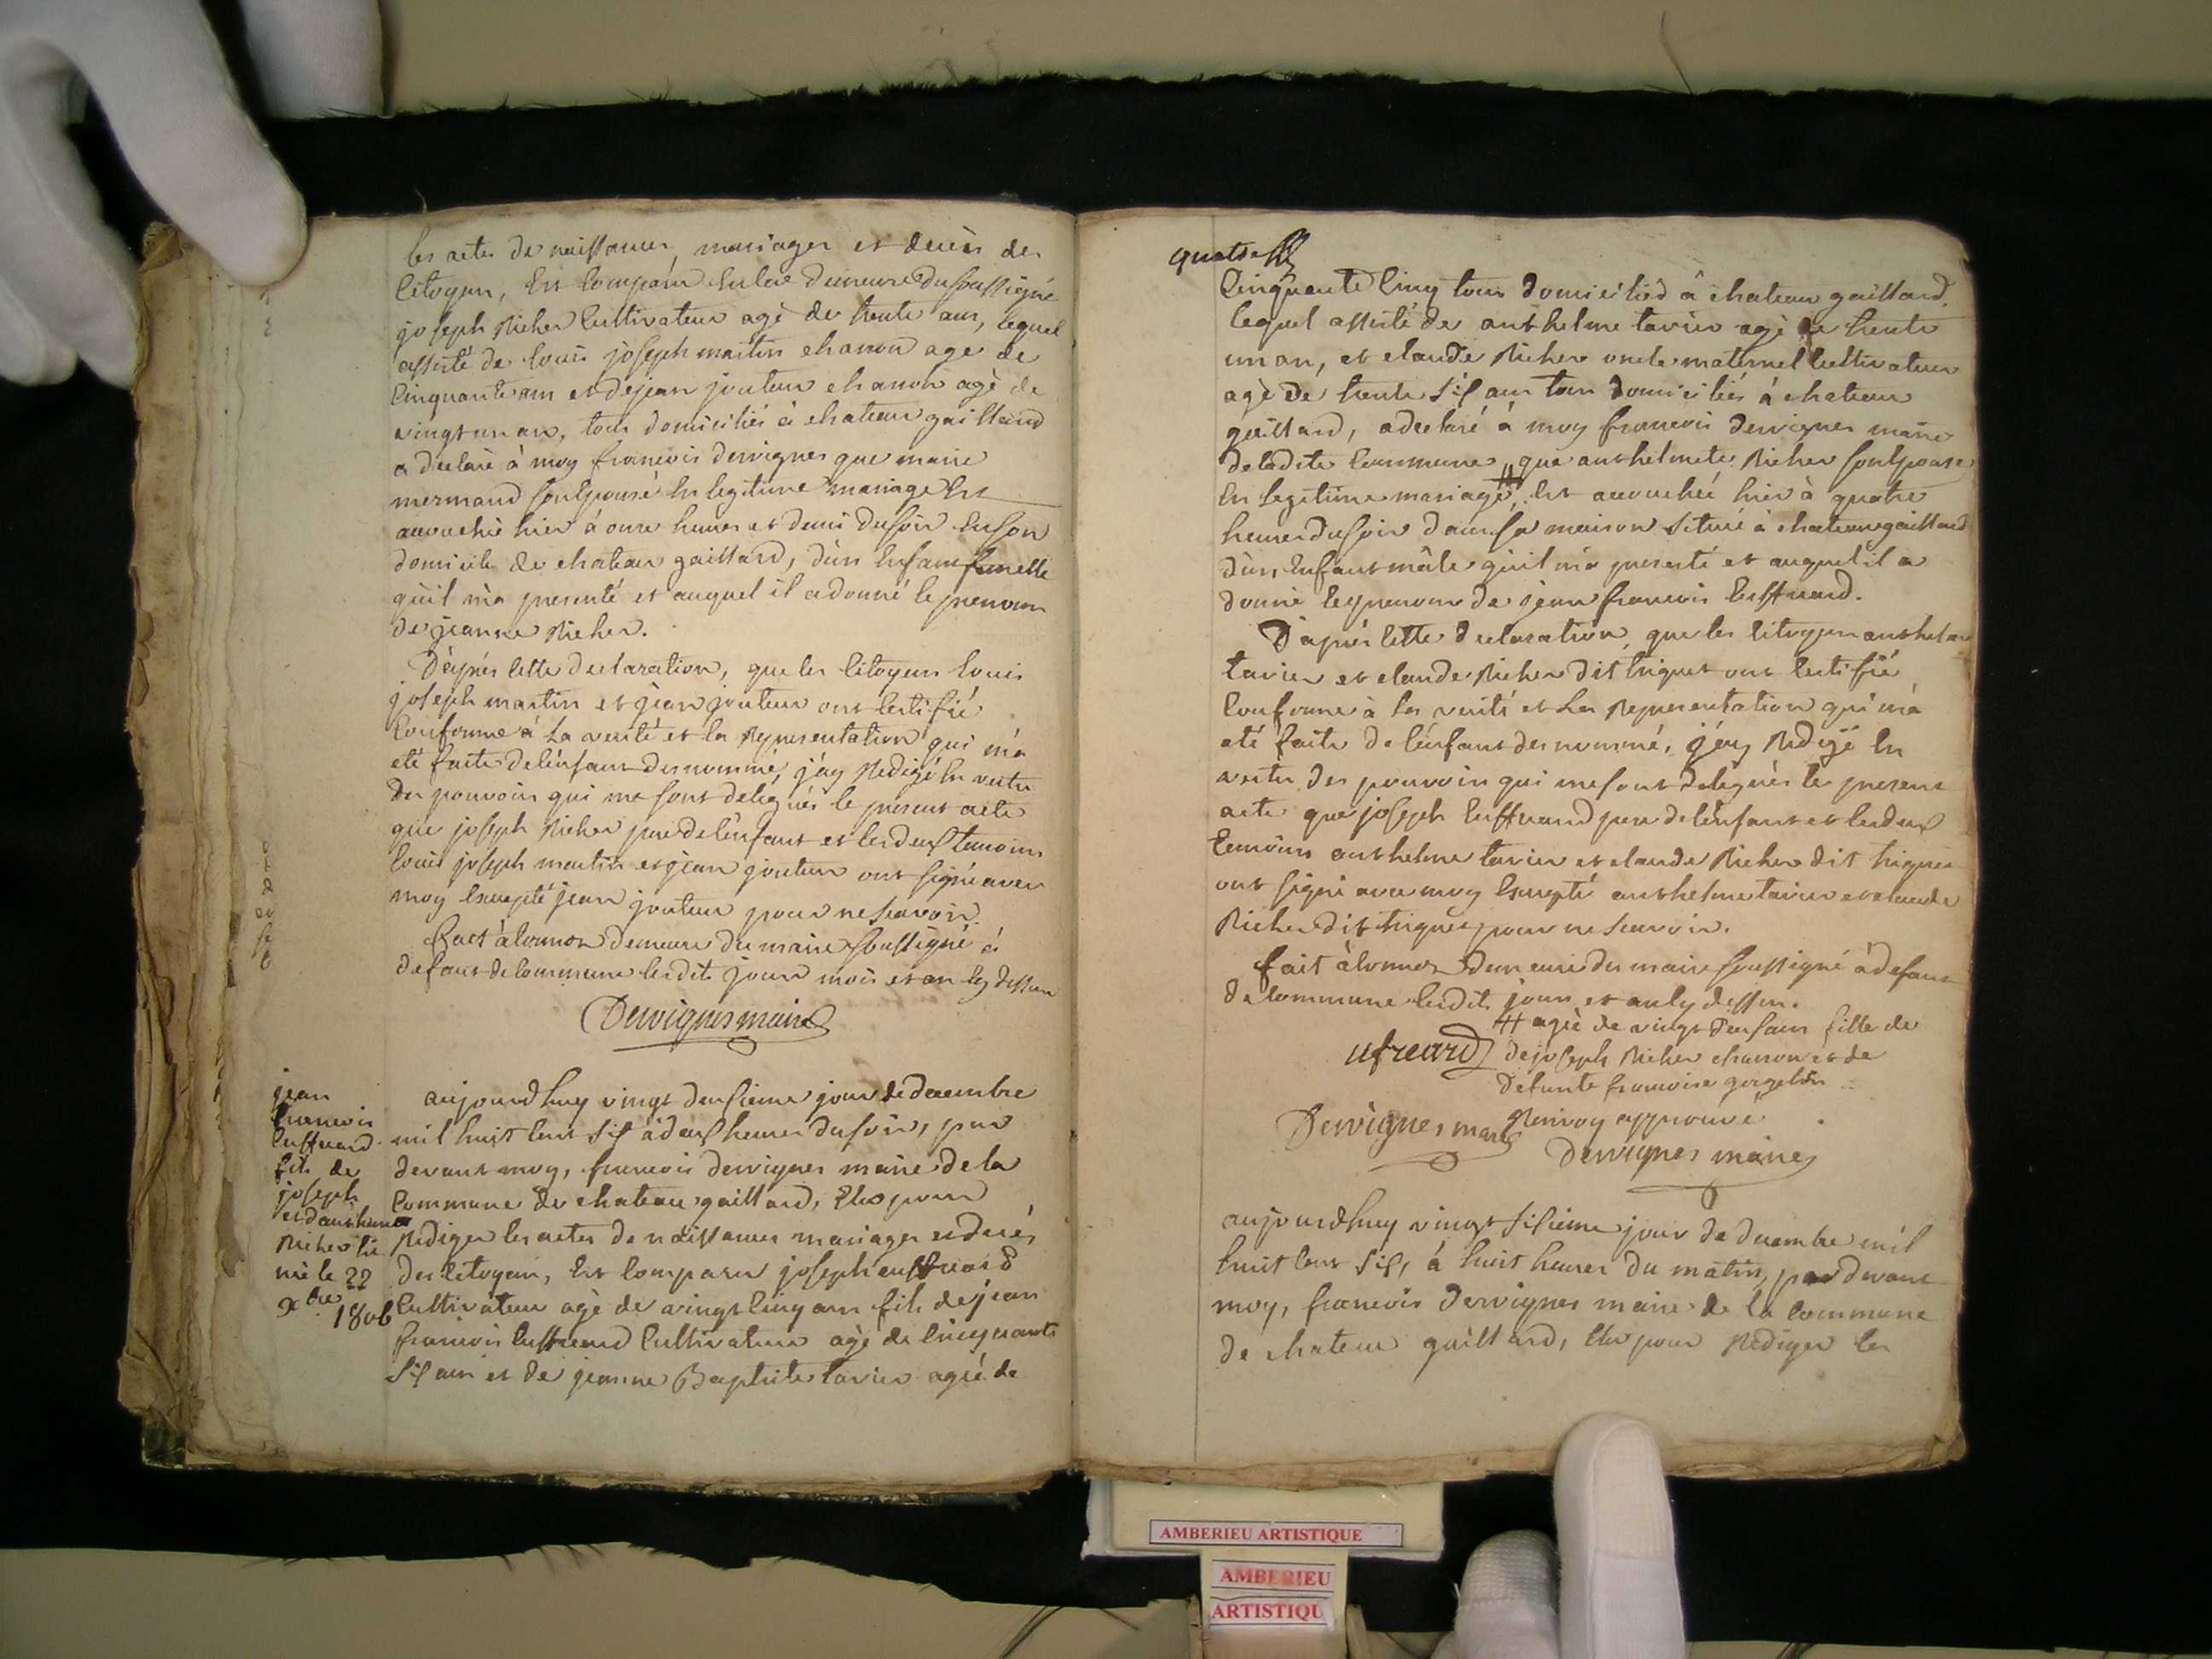 les actes de naissances, mariages et decès des
Citoyens, Est Comparu En la demeure du soussigné
joseph Richer Cultivateur agé de trente ans, lequel
assisté de louis joseph martin charron agé de
Cinquante ans et de jean jouteur charron agé de
vingt un ans, tous domiciliés à chateau gaillard
a declaré à moy francois dervignes que marie
mermand son Epouse En legitime mariage Est
accouchée hier à onze heures et demi du soir En son
domicile de chateau gaillard, d'un Enfant femelle
qu'il m'a presenté et auquel il a donné le prenom
de jeanne Richer.
D'après Cette declaration, que les Citoyens louis
joseph martin et jean jouteur ont Certifié
Conforme à La verité et la Representation qui m'a
eté faite de l'enfant denommé, j'ay Redigé En vertu
des pouvoirs qui me sont delegués le present acte
que joseph Richer pere de l'enfant et les deux temoins
louis joseph martin et jean jouteur ont signé avec
moy Excepté jean jouteur pour ne scavoir.
fait à Commune demeure du maire soussigné à
defaut de Commune lesdits jour mois et an Cy dessus
Dervignes maire
jean
francois
Cuffrard
fils de
joseph
et d'anthelme
Richer
né le 22
xbre 1806
aujourd'huy vingt deuxieme jour de decembre
mil huit Cent six à deux heures du soir, par
devant moy, francois dervignes maire de la
Commune de chateau gaillard, Elu pour
Rediger les actes de naissances mariages et decés
des Citoyens, Est Comparu joseph
Cultivateur agé de vingt Cinq ans fils de jean
francois Cultivateur agé de Cinquante
six ans et de jeanne Baptiste tavier agée de
quatre
Cinquante Cinq tous domiciliés à chateau gaillard,
lequel assisté de anthelme tavier agé de trente
un an, et claude Richer oncle maternel Cultivateur
agé de trente six ans tous domiciliés à chateau
gaillard, a declaré à moy francois dervignes maire
de ladite Commune, que anthelmete Richer son Epouse
En legitime mariage, # Est accouchée hier à quatre
heures du soir dans sa maison située à chateau gaillard
d'un Enfant mâle qu'il m'a presenté et auquel il a
donné le prenom de jean francois Cuffrard.
D'après Cette declaration, que les Citoyens anthelme
tavier et claude Richer dit triquet ont Certifié
Conforme à la verité et La Representation qui m'a
eté faite de l'enfant denommé, j'ay Redigé En
vertu des pouvoirs qui me sont delegués le present
acte que joseph Cuffrard pere de l'enfant et les deux
temoins anthelme tavier et claude Richer dit triquet
ont signé avec moy Excepté anthelme tavier et claude
Richer dit triquet pour ne scavoir.
fait à Commune demeure du maire soussigné à defaut
de Commune lesdits jour et an Cy dessus.
# agée de vingt deux ans fille de
de joseph Richer charron et de
defunte francoise
Renvoy approuvé
Dervignes maire
Dervignes maire
aujourd'huy vingt sixieme jour de decembre mil
huit Cent six, à huit heures du matin, par devant
moy, francois dervignes maire de la Commune
de chateau gaillard, Elu pour Rediger les
AMBERIEU ARTISTIQUE
AMBERIEU
ARTISTIQU